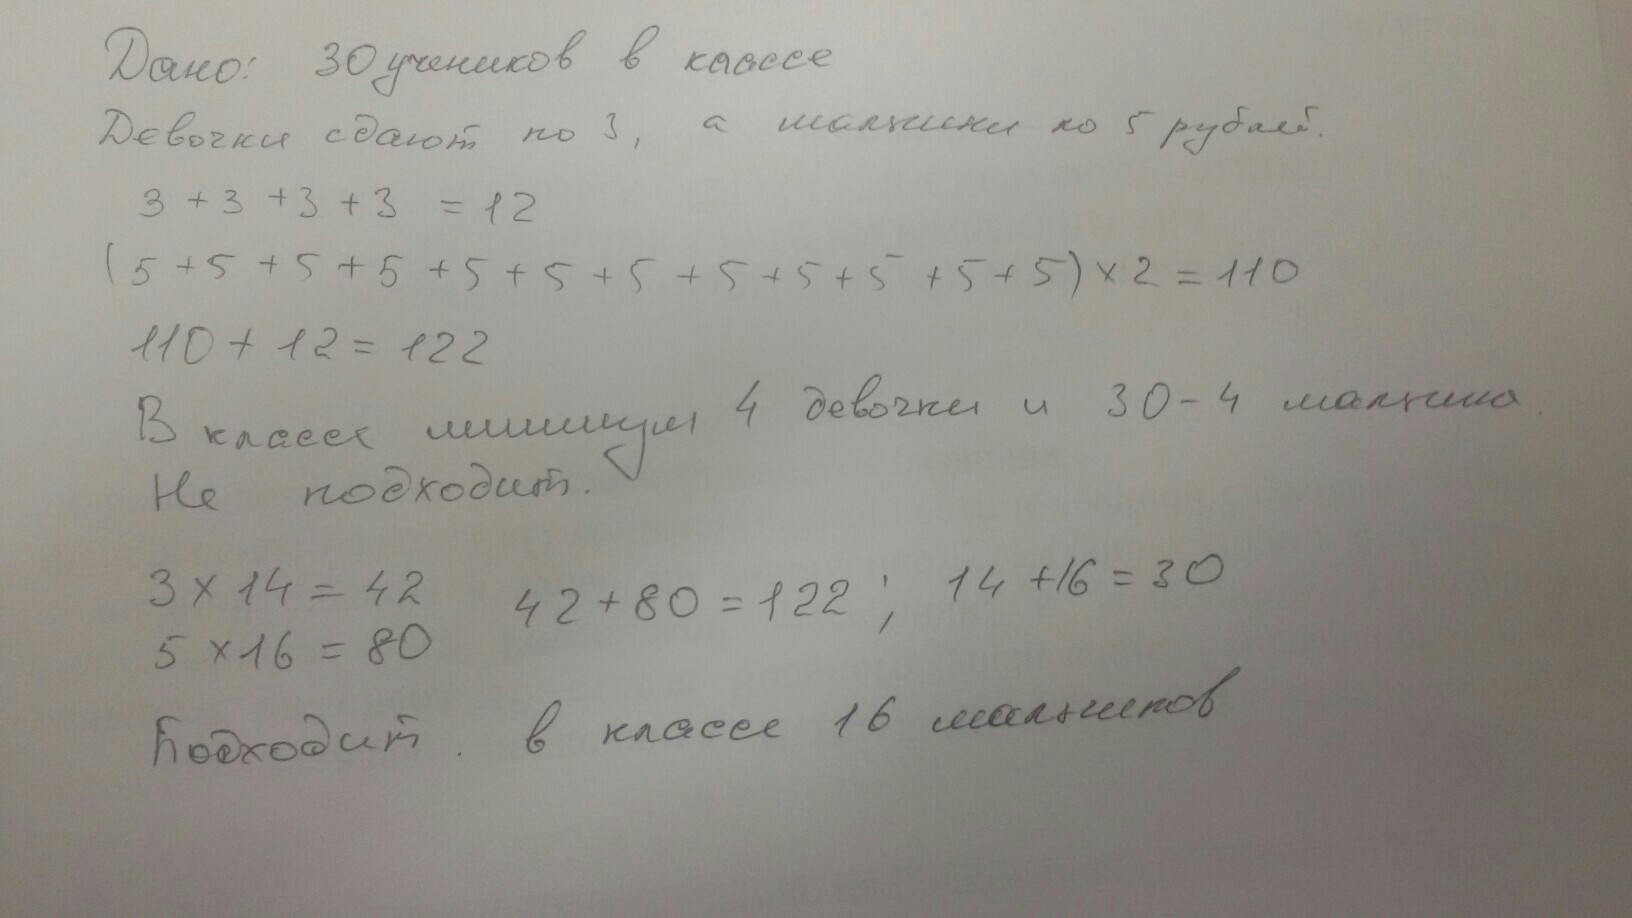 Дано: 30 учеников в классе
Девочки сдают по 3, а мальчики по 5 рублей.
3 + 3 + 3 + 3 = 12
(5 + 5 + 5 + 5 + 5 + 5 + 5 + 5 + 5 + 5 + 5 + 5) × 2 = 110
110 + 12 = 122
В классе минимум 4 девочки и 30 - 4 мальчика.
Не подходит.
3 × 14 = 42 42 + 80 = 122 ; 14 + 16 = 30
5 × 16 = 80
Подходит. в классе 16 мальчиков